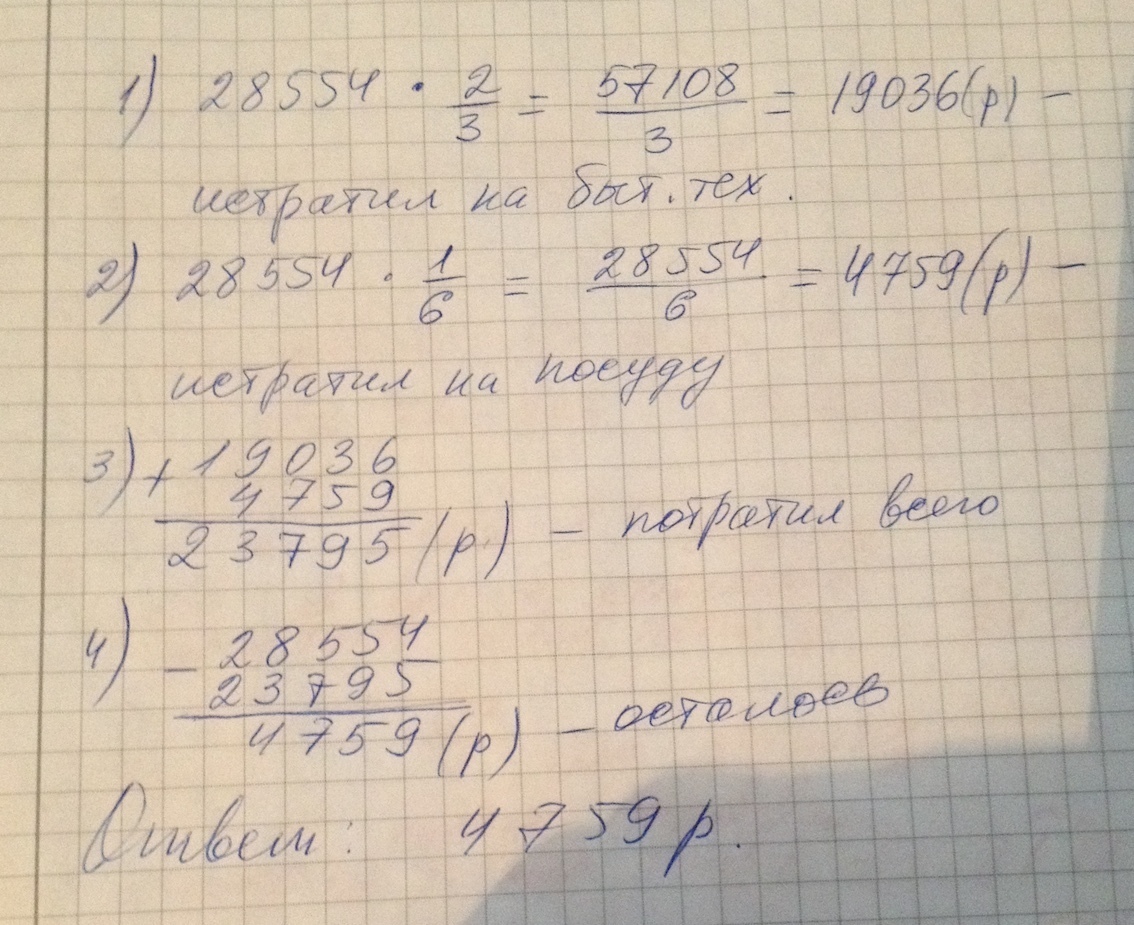 1) 28554 · 2/3 = 57108/3 = 19036(р) –
истратил на быт. тех.
2) 28554 · 1/6 = 28554/6 = 4759(р) –
истратил на посуду
3) + 19036
4759
23795(р) – потратил всего
4) – 28554
23795
4759(р) – осталось
Ответ: 4759 р.